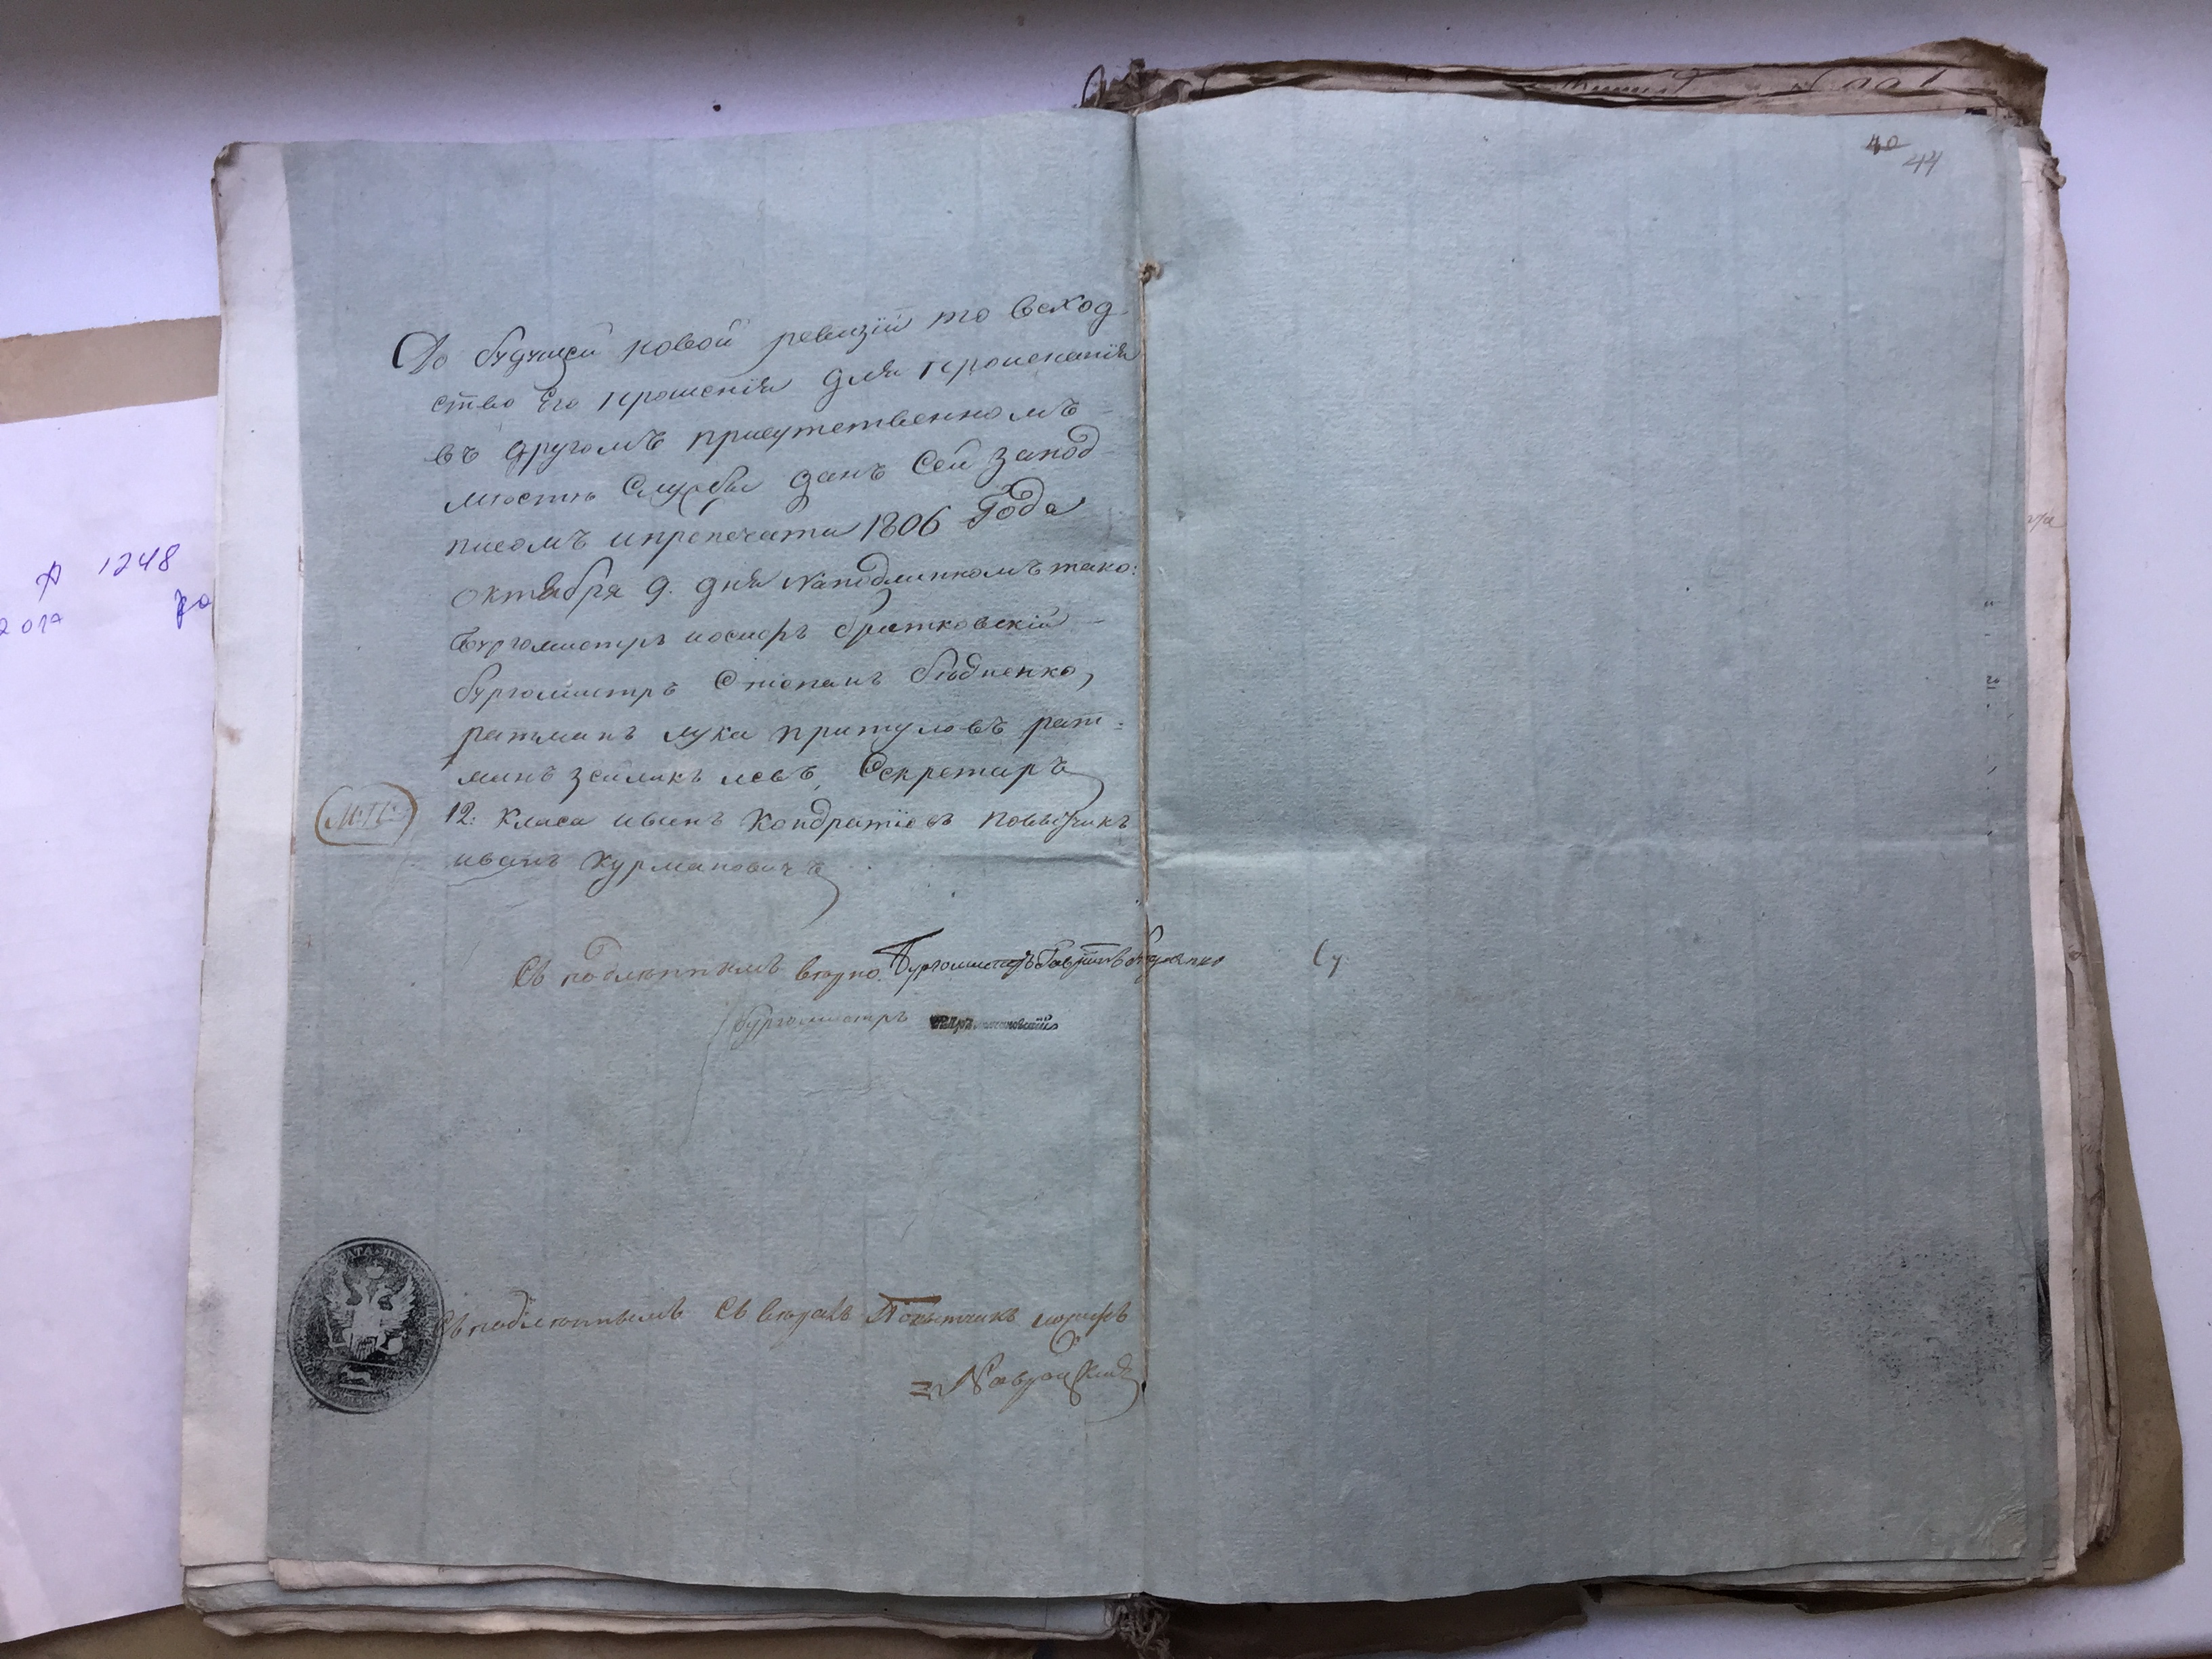 40
44
До будущей новой ревизіи то всход
ство Его прошенія для происканія
въ другомъ присутственномъ
мюстю Службы данъ Сей запод
писомъ ипропечати 1806 Года
октября 9. дня Naподлинномъ тако:
Бургомистръ иосифъ братковскій
бургомистръ Степанъ бюдненко,
ратманъ лука притуловъ рат:
манъ левъ, Секретарь
12: класа иванъ кондратіевъ повытчикъ
иванъ курмановичъ
М:П:
Съ подлюннымъ вюрно Бургомистръ
бургомистръ
Съ подлюннымъ Свюралъ Повытчикъ иосифъ
Навроцкий
А 1248
2017